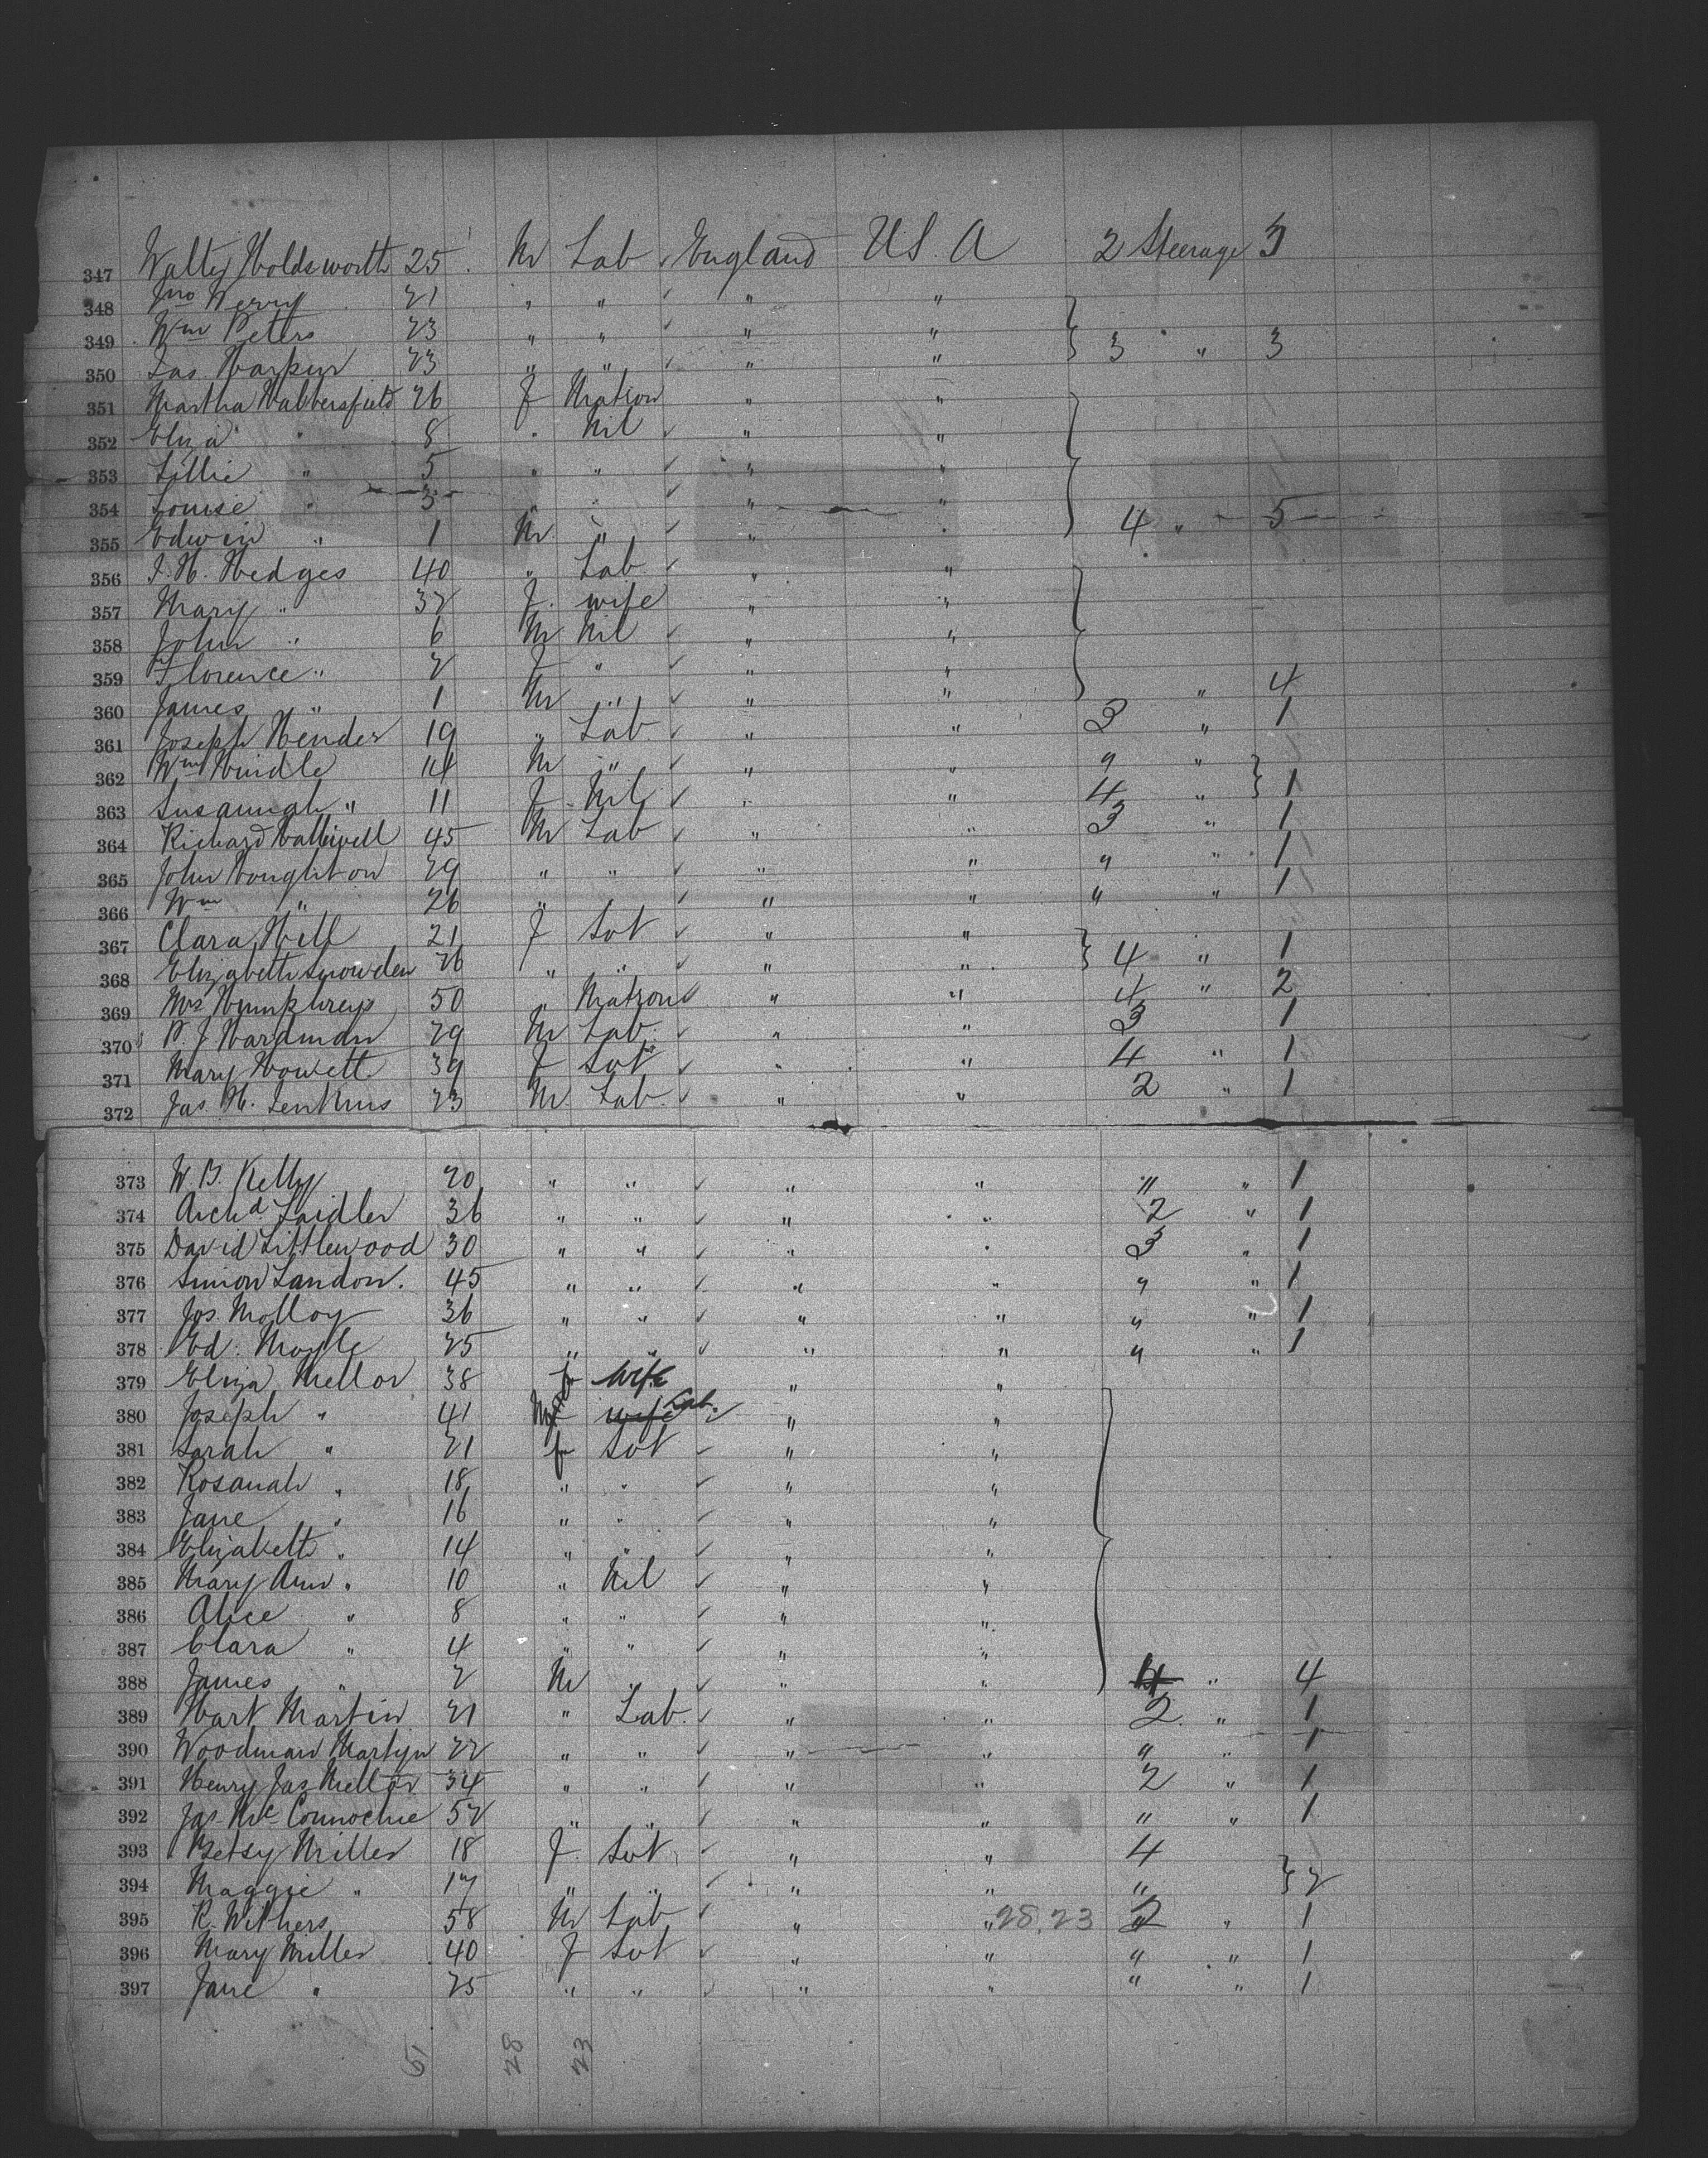 347 Walter Holdsworth 25 M Lab England U.S.A 2 Steerage 3
348 Jno Werry 21 " " " "
349 Wm Peters 23 " " " " 3 " 3
350 Jas. Harper 23 " " " "
351 Martha 26 f Matron " "
352 Eliza " 8 " Nil " "
353 Lillie " 5 " " " "
354 Louise " 3 " " "
355 Edwin " 1 M " " " 4 " 5
356 J. H. Hedges 40 " Lab " "
357 Mary " 32 f. wife " "
358 John " 6 M Nil " "
359 Florence " 2 f " " "
360 James " 1 M " " " " 4
361 Joseph Hender 19 " Lab " " 3 " 1
362 Wm Hindle 14 M " " " " "
363 Susannah " 11 f Nil " " 4 " 1
364 Richard Halliwell 45 M Lab " " 3 " 1
365 John Houghton 29 " " " " " " 1
366 Wm " 26 " " " " " " 1
367 Clara Hill 21 f Svt " "
368 Elizabeth Snowden 26 " " " " 4 " 1
369 Mrs Humphreys 50 " Matron " " 4 " 2
370 P. J. Hardman 29 M Lab " " 3 1
371 Mary Howett 39 f Svt " " 4 " 1
372 Jas. H. Jenkins 23 M Lab. " " 2 " 1
373 W. B. Kelly 20 " " " " " " 1
374 Archd. Laidler 36 " " " " 2 " 1
375 David Littlewood 30 " " " " 3 " 1
376 Simon Landon. 45 " " " " " " 1
377 Jos. Molloy 36 " " " " " " 1
378 Ed. Moyle 25 " " " " " " 1
379 Eliza Mellor 38 f wife " "
380 Joseph " 41 M wife Lab. " "
381 Sarah " 21 f Svt " "
382 Rosanah " 18 " " " "
383 Jane " 16 " " " "
384 Elizabeth " 14 " " " "
385 Mary Ann " 10 " Nil " "
386 Alice " 8 " " " "
387 Clara " 4 " " " "
388 James " 2 M " " " 4 " 4
389 Hart Martin 21 " Lab. " " 2 " 1
390 Woodman Martyn 22 " " " " " " 1
391 Henry Jas Mellor 34 " " " " 2 " 1
392 Jas. Mc Connochie 52 " " " " " " 1
393 Betsy Miller 18 f. Svt " " 4
394 Maggie " 17 " " " " " 2
395 R. Withers 58 M Lab " " 28,23 2 " 1
396 Mary Miller 40 f Svt " " " " 1
397 Jane " 25 " " " " " " 1
51 28 23